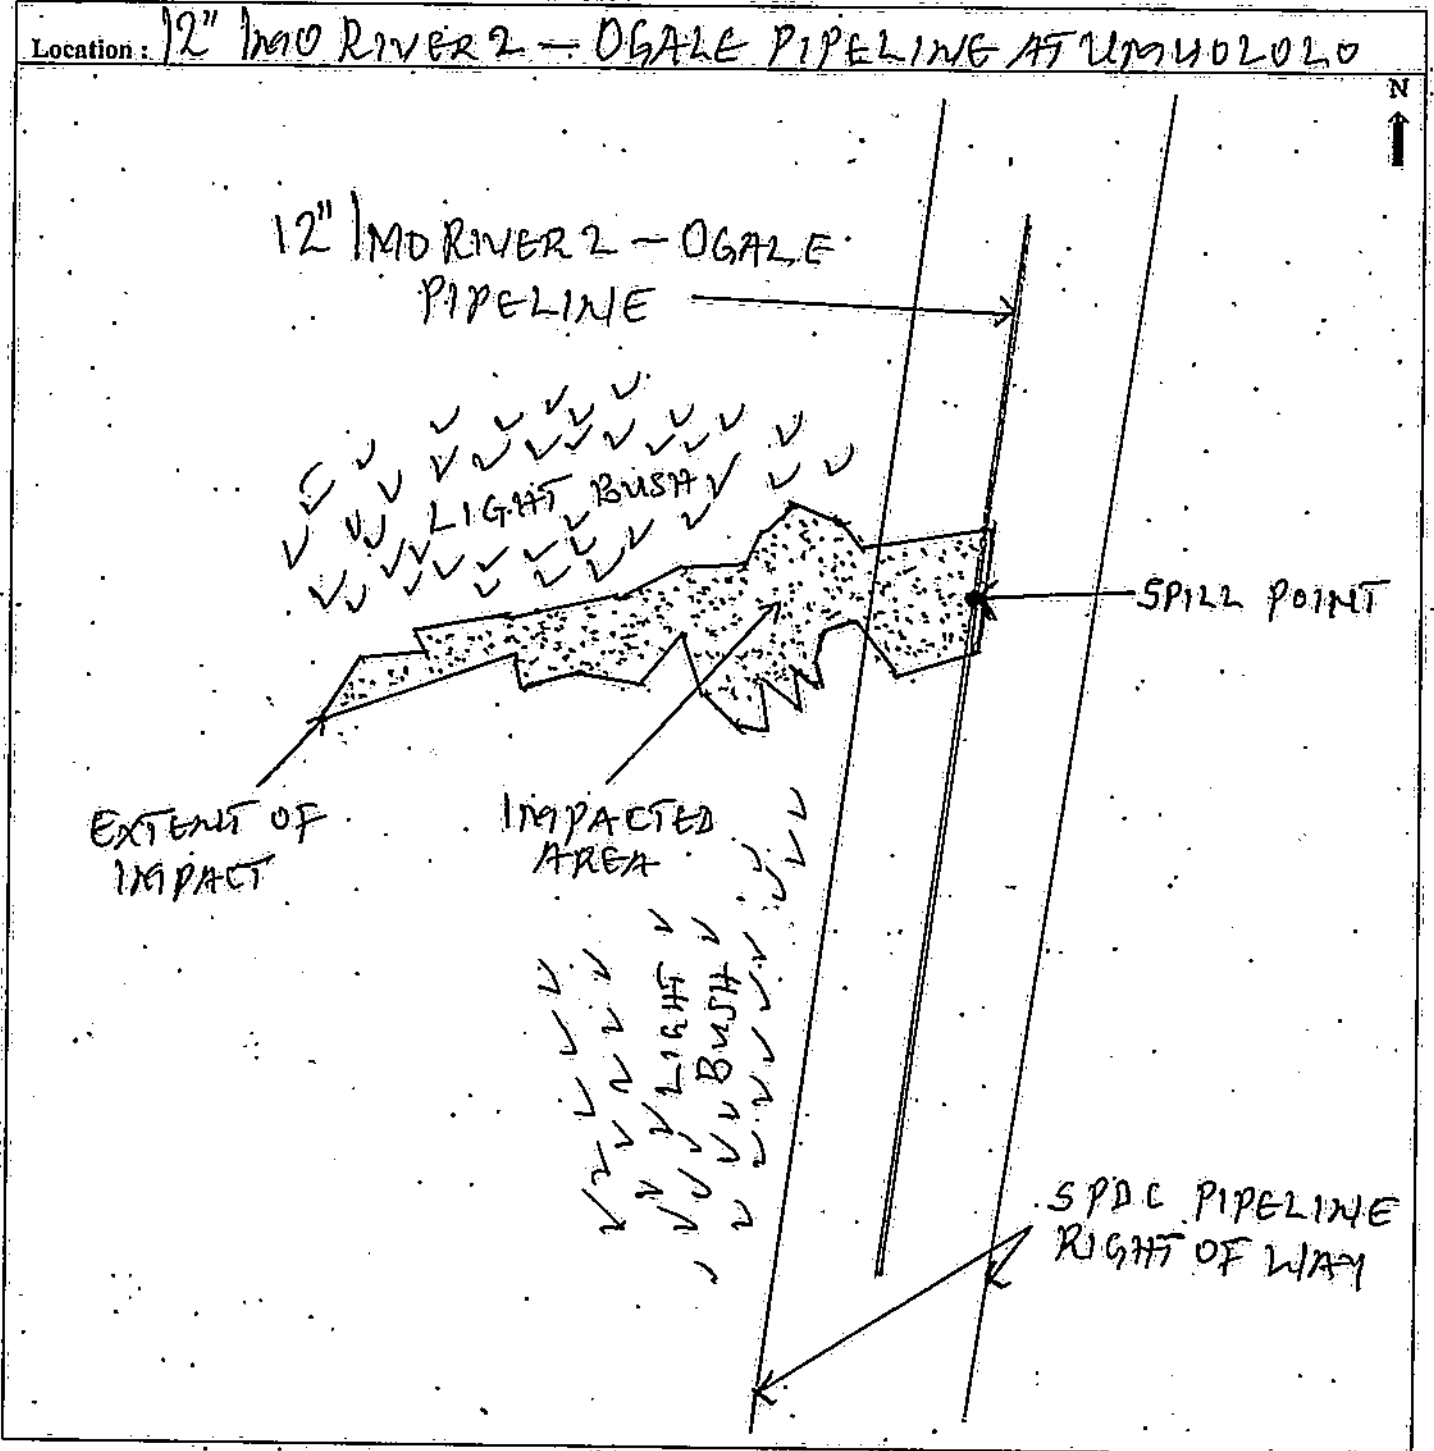 Location : 12" IMO RIVER 2 - OGALE PIPELINE AT UMUOLOLO
N
12" IMO RIVER 2 - OGALE
PIPELINE
LIGHT BUSH
SPILL POINT
EXTENT OF
IMPACT
IMPACTED
AREA
LIGHT
BUSH
SPDC PIPELINE
RIGHT OF WAY